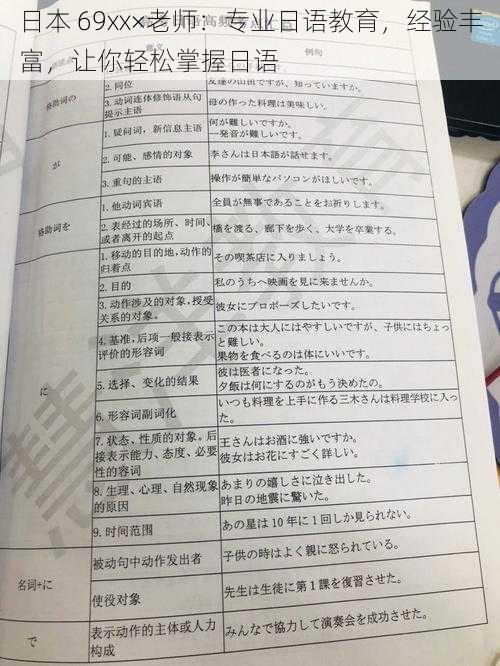 日本 69xx×老师：专业日语教育，经验丰
富，让你轻松掌握日语
意义
例句
格助词の
2. 同位
友達の山田ですが、知っていますか。
3. 动词连体修饰语从句
提示主语
母の作った料理は美味しい。
が
1. 疑问词，新信息主语
何が難しいですか。
一発音が難しいです。
2. 可能、感情的对象
李さんは日本語が話せます。
3. 重句的主语
操作が簡単なパソコンがほしいです。
格助词を
1. 他动词宾语
全員が無事であることをお祈りします。
2. 表经过的场所、时间、
或者离开的起点
橋を渡る、廊下を歩く、大学を卒業する。
に
1. 移动的目的地，动作的
归着点
その喫茶店に入りましょう。
2. 目的
私のうちへ映画を見に来ませんか。
3. 动作涉及的对象，授受
关系的对象。
彼女にプロポーズしたいです。
4. 基准，后项一般接表示
评价的形容词
この本は大人にはやすしいですが、子供にはちょっ
と難しい。
果物を食べるのは体にいいです。
5. 选择、变化的结果
彼は医者になった。
夕飯は何にするのがもう決めたの。
6. 形容词副词化
いつも料理を上手に作る三木さんは料理学校に入っ
た。
7. 状态、性质的对象。后
接表示能力、态度、必要
性的容词
王さんはお酒に強いですか。
彼女はお花にすごく詳しい。
8. 生理、心理、自然现象
的原因
あまりの嬉しさに泣き出した。
昨日の地震に驚いた。
9. 时间范围
あの星は 10 年に 1 回しか見られない。
名词+に
被动句中动作发出者
子供の時はよく親に怒られている。
使役对象
先生は生徒に第 1 課を復習させた。
で
表示动作的主体或人力
构成
みんなで協力して演奏会を成功させた。